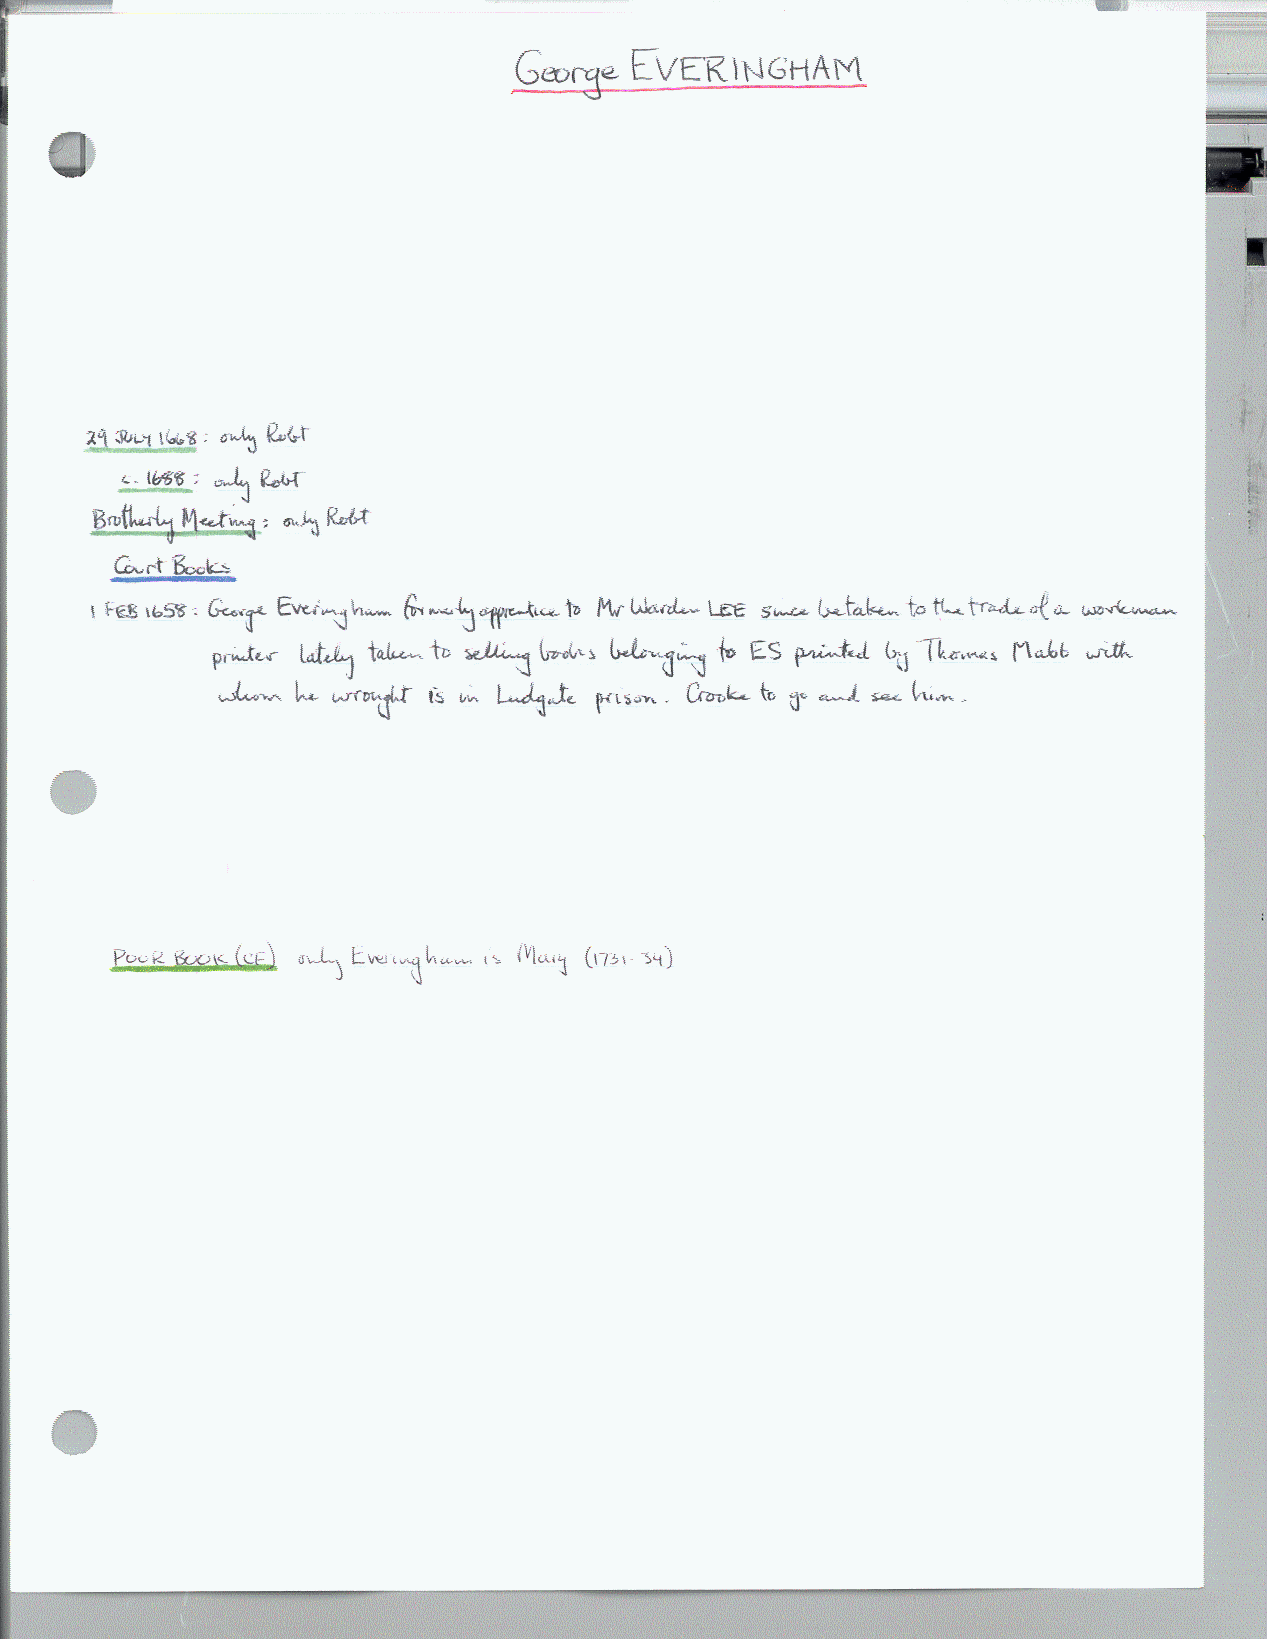 George EVERINGHAM
29 JULY 1668: only Robt
c. 1688: only Robt
Brotherly Meeting: only Robt
Court Books
1 FEB 1658: George Everingham formerly apprentice to Mr Warden LEE since betaken to the trade of a workman
printer lately taken to selling books belonging to ES printed by Thomas Mabb with
whom he wrought is in Ludgate prison. Crooke to go and see him.
POOR BOOK (CE) only Everingham is Mary (1731-34)